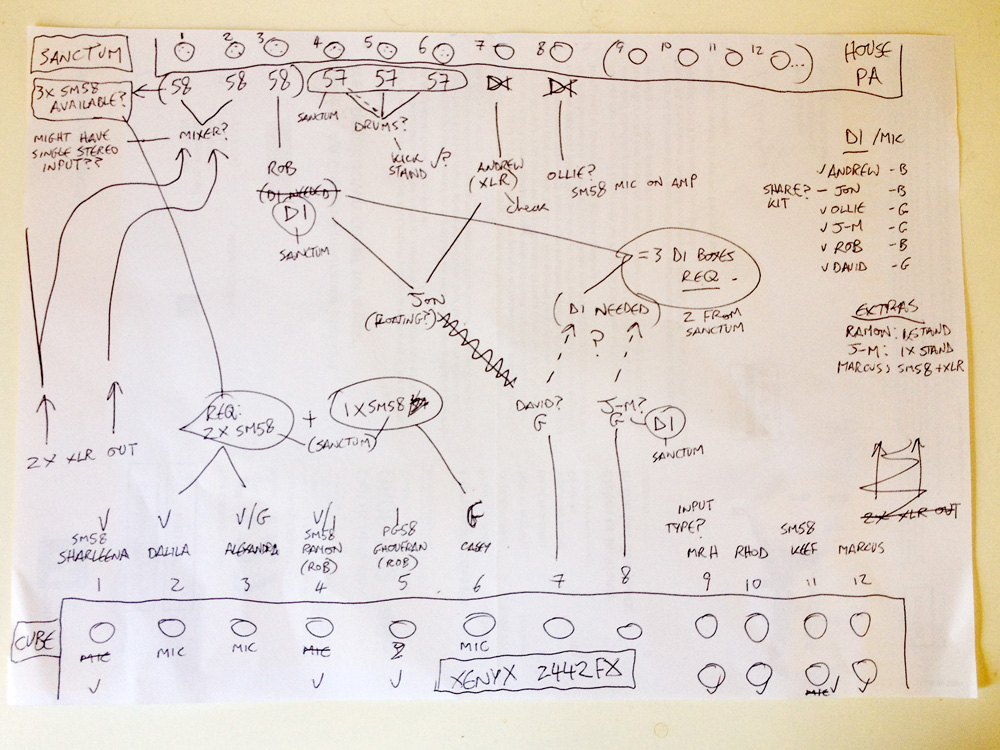 SANCTUM
1 2 3 4 5 6 7 8 (9 10 11 12 ...)
HOUSE
PA
3x SM58
AVAILABLE?
(58 58 58) 57 57 57 DI DI
MIGHT HAVE
SINGLE STEREO
INPUT??
MIXER?
SANCTUM
DRUMS?
KICK
STAND √?
ROB
(DI NEEDED)
DI
SANCTUM
ANDREW
(XLR)
check
OLLIE?
SM58 MIC ON AMP
DI/MIC
√ ANDREW - B
SHARE? - JON - B
KIT
√ OLLIE - G
√ J-M - G
√ ROB - B
√ DAVID - G
= 3 DI BOXES
REQ.
2 FROM
SANCTUM
JON
(FLOATING?)
(DI NEEDED)
?
EXTRAS
RAMON: 1xSTAND
J-M: 1X STAND
MARCUS: SM58+XLR
REQ:
2X SM58
+
1XSM58
(SANCTUM)
DAVID?
G
J-M?
G
DI
SANCTUM
2X XLR OUT
2X XLR OUT
V
SM58
SHARLEENA
1
V
DALILA
2
V/G
ALEXANDRA
3
V/
SM58
RAMON
(ROB)
4
PG58
GHOUFRAN
(ROB)
5
G
CASEY
6
7
8
INPUT
TYPE?
MRH
9
RHOD
10
SM58
KEEF
11
MARCUS
12
CUBE
MIC √
MIC
MIC
MIC √
? √
MIC
XENYX 2442FX
MIC √
√